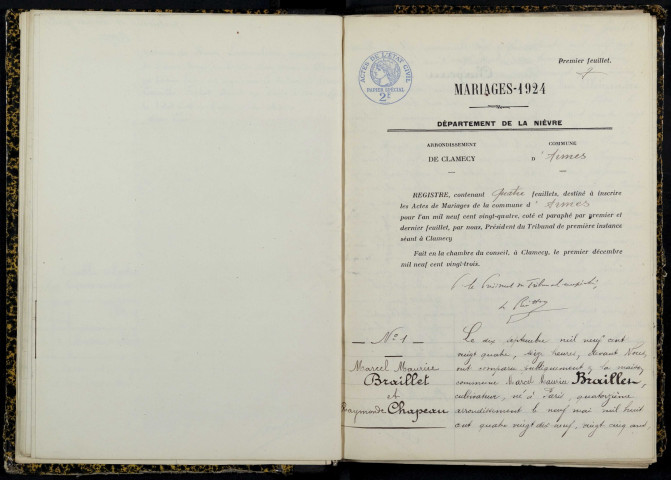 Premier feuillet.
ACTES DE L'ETAT CIVIL
PAPIER SPECIAL
2
MARIAGES-1924
DÉPARTEMENT DE LA NIÈVRE
ARRONDISSEMENT
DE CLAMECY
COMMUNE
D'Armes
REGISTRE, contenant quatre feuillets, destiné à inscrire
les Actes de Mariages de la commune d'Armes
pour l'an mil neuf cent vingt-quatre, coté et paraphé par premier et
dernier feuillet, par nous, Président du Tribunal de première instance
séant à Clamecy
Fait en la chambre du conseil, à Clamecy, le premier décembre
mil neuf cent vingt-trois.
— No 1 —
Marcel Maurice
Braillet
et
Raymonde Chapeau
Le six septembre mil neuf cent
vingt quatre, heures, devant Nous,
ont comparu publiquement la mairie,
commune Marcel Maurice Braillet,
cultivateur, né à Paris, quatorzième
arrondissement le neuf mai mil huit
cent quatre vingt dix neuf, vingt cinq ans,